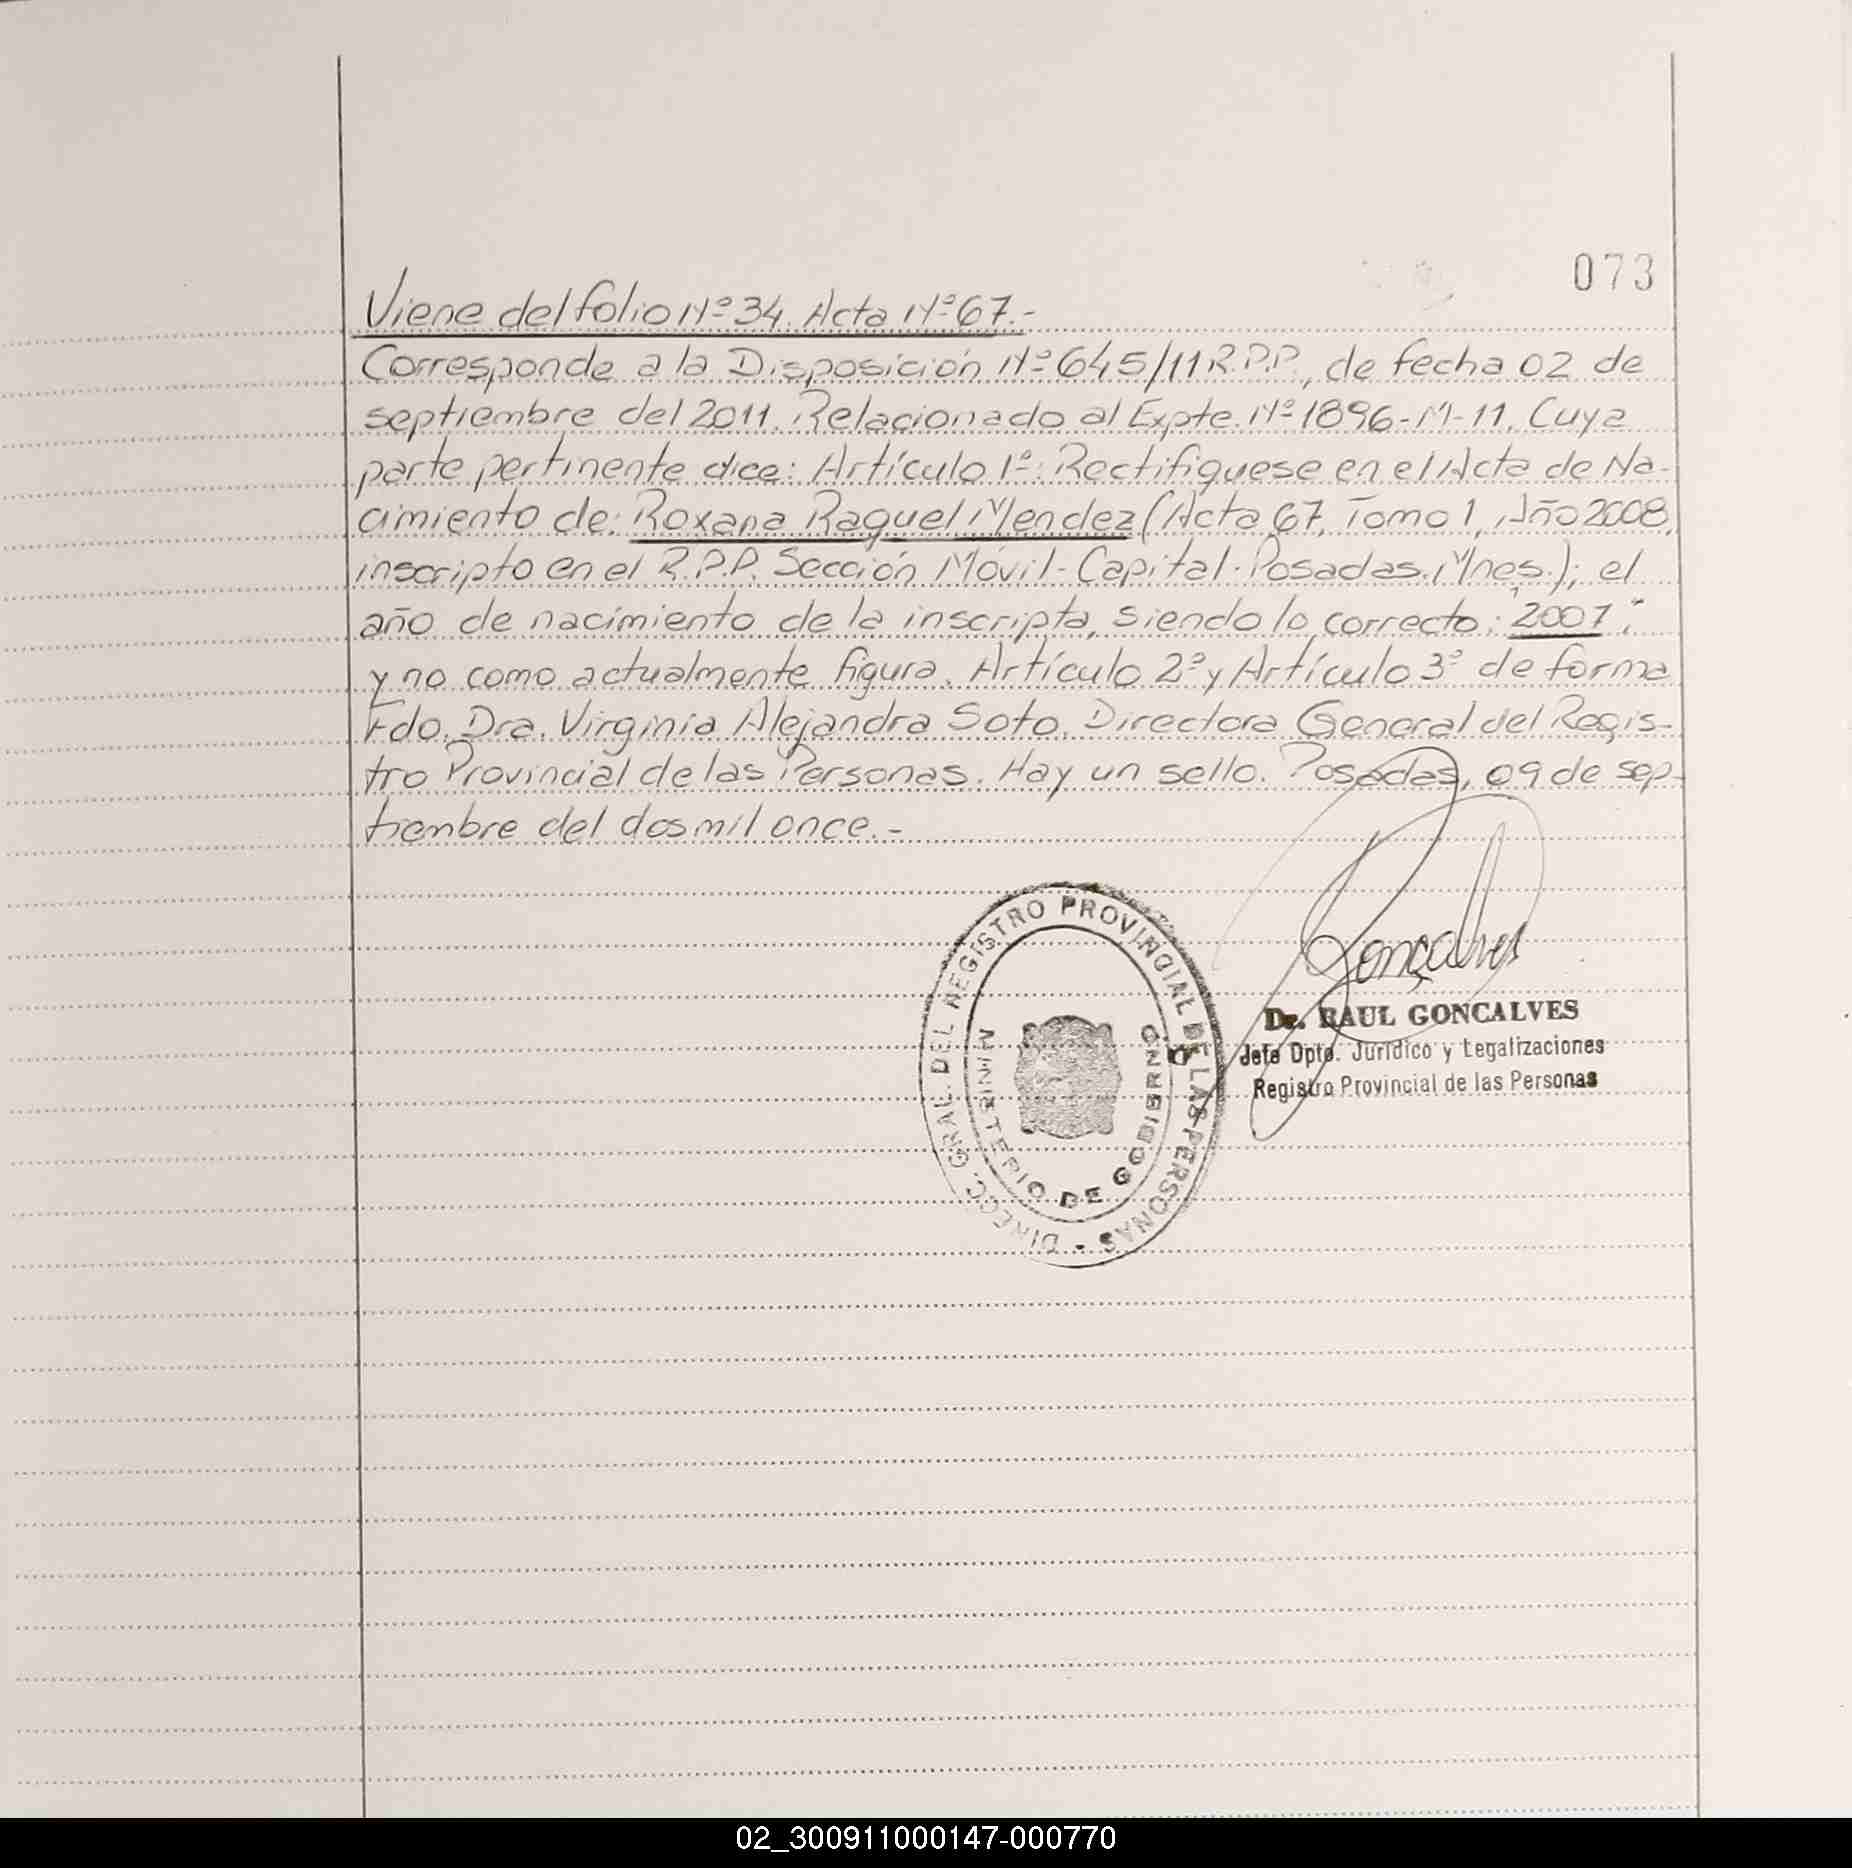 073
Viene del folio Nº 34. Acta Nº 67.-
Corresponde a la Disposición Nº 645/11 R.P.P., de fecha 02 de
septiembre del 2011. Relacionado al Expte. Nº 1896-M-11. Cuya
parte pertinente dice: Artículo 1º: Rectifiquese en el Acta de Na-
cimiento de: Roxana Raquel Mendez (Acta 67, Tomo 1, Año 2008,
inscripto en el R.P.P. Sección Móvil-Capital-Posadas. Mnes.); el
año de nacimiento de la inscripta, siendo lo correcto: "2007",
y no como actualmente figura. Artículo 2º y Artículo 3º de forma
Fdo. Dra. Virginia Alejandra Soto. Directora General del Regis-
tro Provincial de las Personas. Hay un sello. Posadas, 09 de sep-
tiembre del dos mil once.-
DIRECC. GRAL. DEL REGISTRO PROVINCIAL DE LAS PERSONAS -
MINISTERIO DE GOBIERNO
Goncalves
Dr. RAUL GONCALVES
Jefe Dpto. Jurídico y Legalizaciones
Registro Provincial de las Personas
02_300911000147-000770